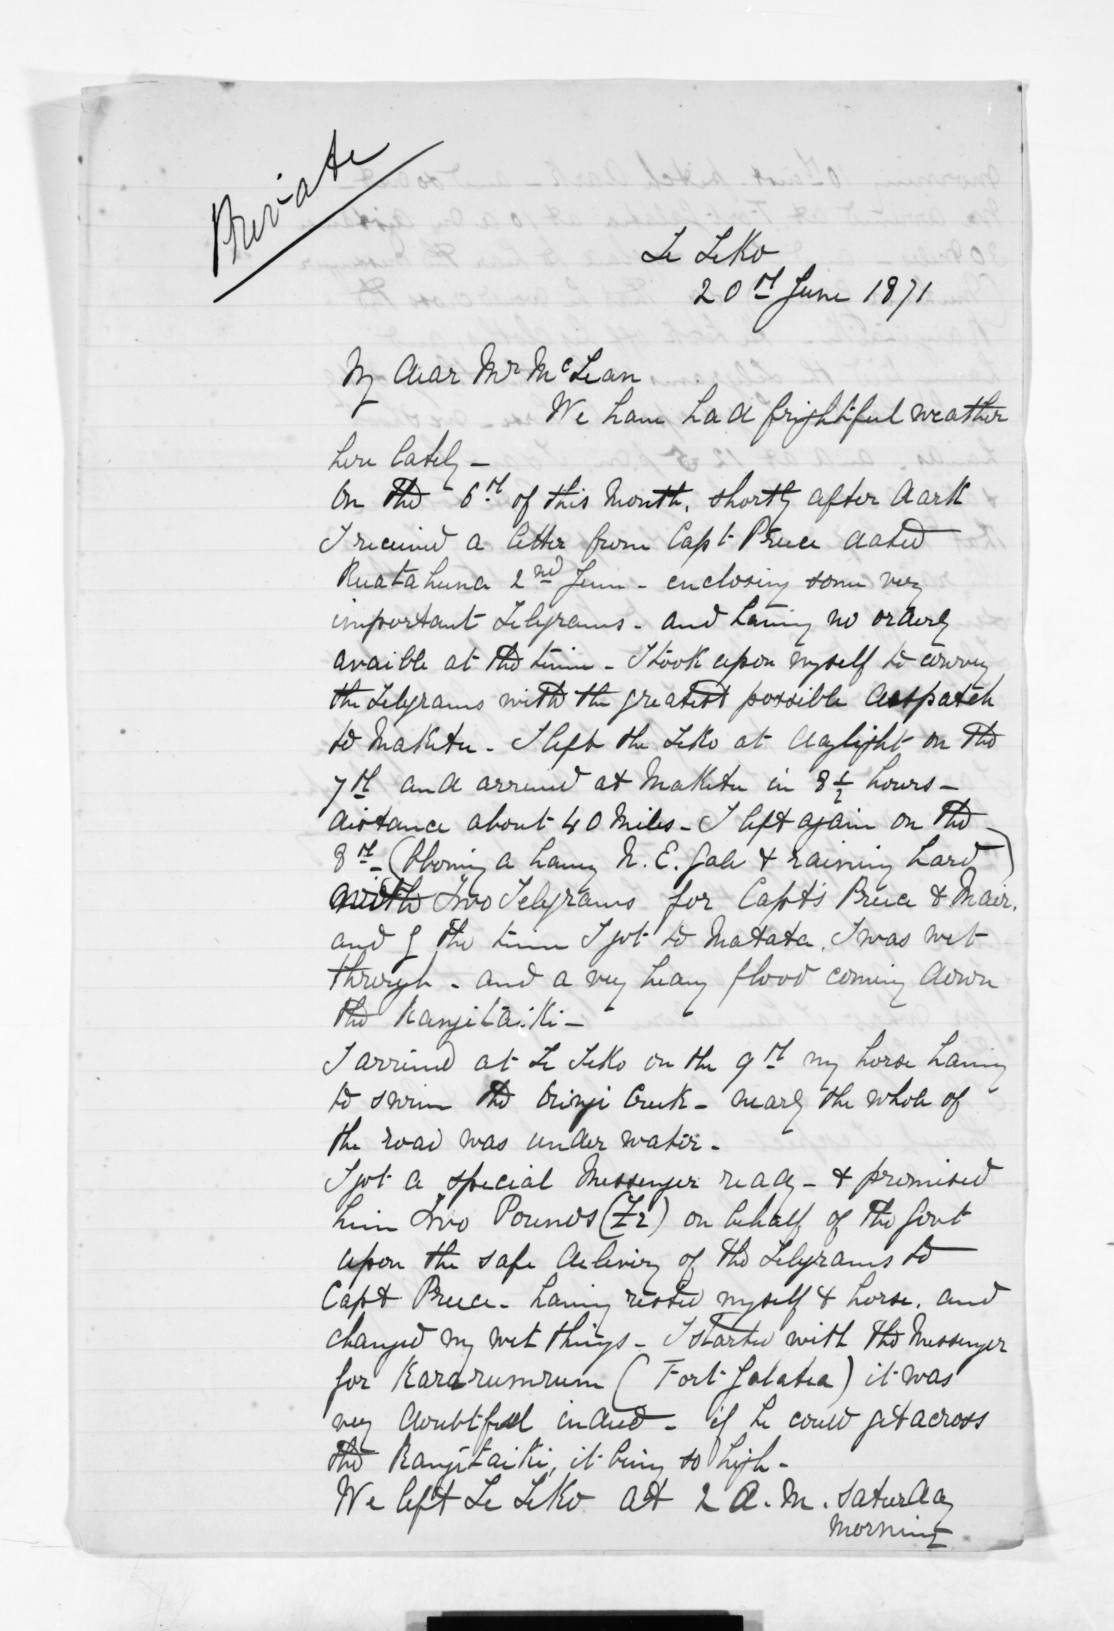 Private
Te Teko
20th June 1871
My dear Mr McLean
We have had frightful weather
here lately -
On the 6th of this Month, shortly after dark
I received a letter from Capt Preece dated
Ruatahuna 2nd June - enclosing some very
important Telegrams - and having no orderly
avaible at the time - I took upon myself to convey
the Telegrams with the greatest possible despatch
to Maketu - I left the Teko at daylight on the
7th and arrived at Maketu in 8 1/2 hours -
distance about 40 Miles - I left again on the
8th - (blowing a heavy N. E. Gale & raining hard)
with Two Telegrams for Capts Preece & Mair.
and by the time I got to Matata, I was wet
through - and a very heavy flood coming down
the Rangitaiki -
I arrived at Te Teko on the 9th my horse having
to swim the Orini Creek - nearly the whole of
the road was under water -
I got a special Messenger ready - & promised
him Two Pounds (£2) on behalf of the Govt
upon the safe delivery of the Telegrams to
Capt Preece - having rested myself & horse, and
changed my wet things - I started with the Messenger
for Kararumrum (Fort Galatea) it was
very doubtful indeed - if he could get across
the Rangitaiki, it being so high -
We left Te Teko at 2 A.M. Saturday
morning